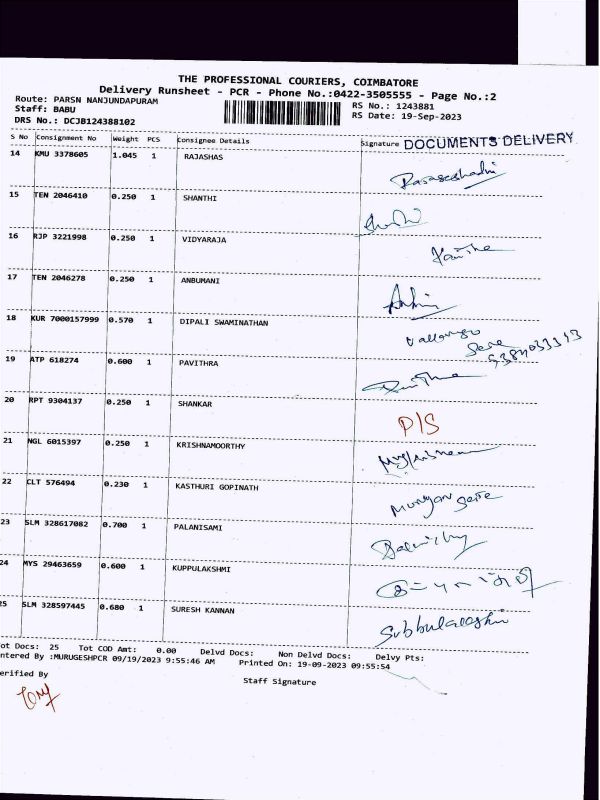 THE PROFESSIONAL COURIERS, COIMBATORE
Delivery Runsheet - PCR - Phone No.:0422-3505555 - Page No.:2
Route: PARSN NANJUNDAPURAM
RS No.: 1243881
Staff: BABU
RS Date: 19-Sep-2023
DRS No.: DCJB124388102
S No Consignment No Weight PCS Consignee Details Signature DOCUMENTS DELIVERY
14 KMU 3378605 1.045 1 RAJASHAS
15 TEN 2046410 0.250 1 SHANTHI
16 RJP 3221998 0.250 1 VIDYARAJA
17 TEN 2046278 0.250 1 ANBUMANI
18 KUR 7000157999 0.570 1 DIPALI SWAMINATHAN
19 ATP 618274 0.600 1 PAVITHRA
20 RPT 9304137 0.250 1 SHANKAR P/S
21 NGL 6015397 0.250 1 KRISHNAMOORTHY
22 CLT 576494 0.230 1 KASTHURI GOPINATH Murugan
23 SLM 328617082 0.700 1 PALANISAMI
24 MYS 29463659 0.600 1 KUPPULAKSHMI
25 SLM 328597445 0.680 1 SURESH KANNAN Subbulakshmi
ot Docs: 25 Tot COD Amt: 0.00 Delvd Docs: Non Delvd Docs: Delvy Pts:
ntered By :MURUGESHPCR 09/19/2023 9:55:46 AM Printed On: 19-09-2023 09:55:54
erified By
Staff Signature